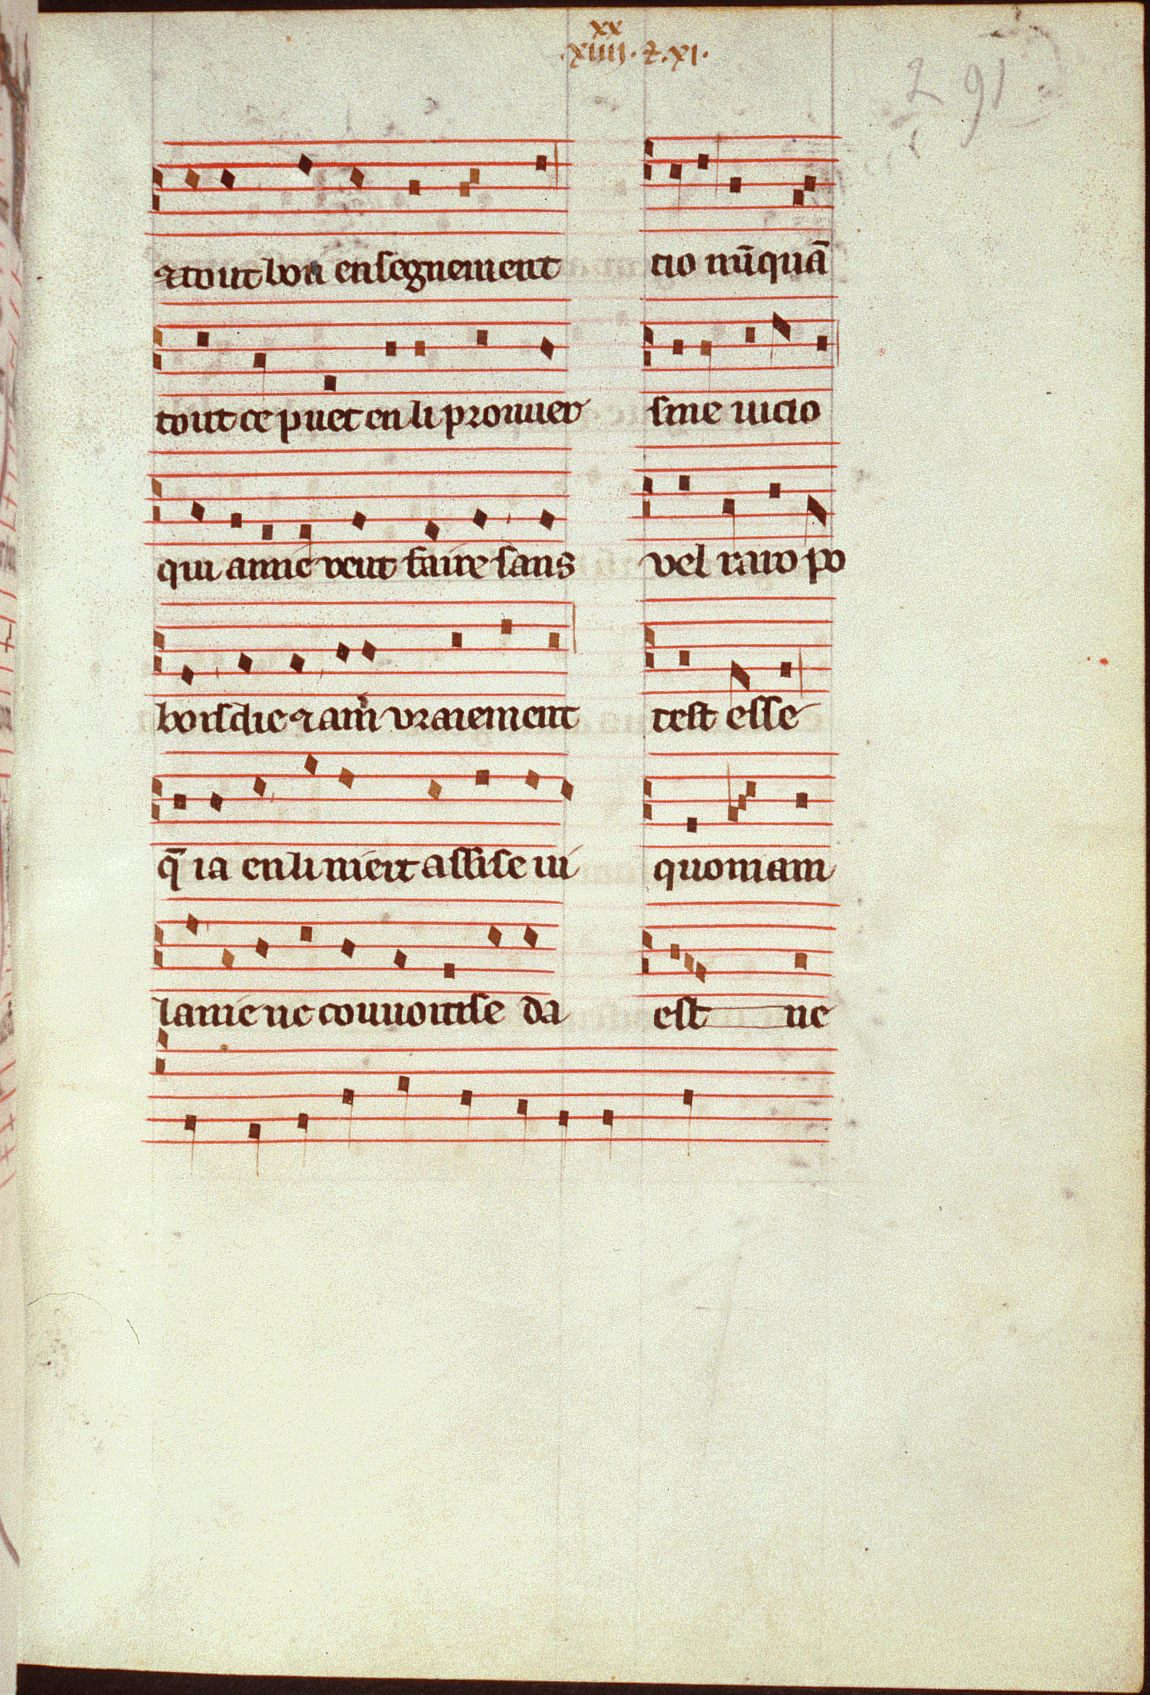 xx
.xiiii. ⁊ .xi.
291
⁊ tout bon ensegnement
tout ce puet en li prouver
qui amie veut faire sans
boisdie ⁊ am̄ vraiement
q̄ ia en li niert assise vi
lanie ne couvoitise da
cio nūquā
sine vicio
vel raro po
test esse
quoniam
est ne